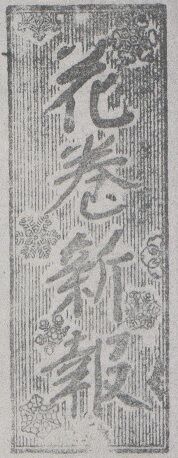 花巻新報